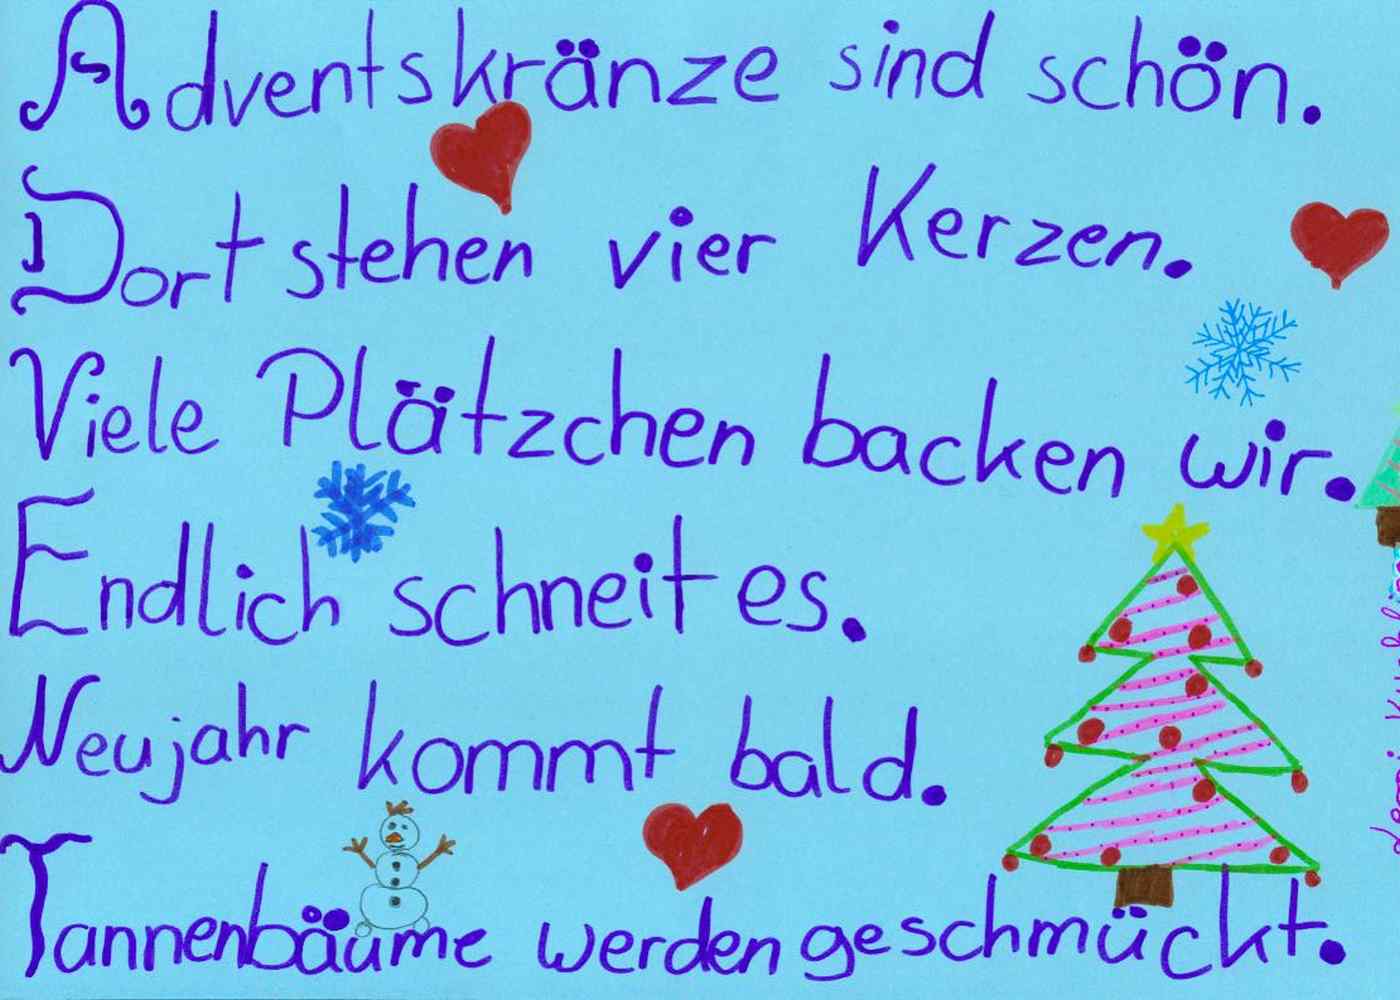 Adventskränze sind schön.
Dort stehen vier Kerzen.
Viele Plätzchen backen wir.
Endlich schneit es.
Neujahr kommt bald.
Tannenbäume werden geschmückt.